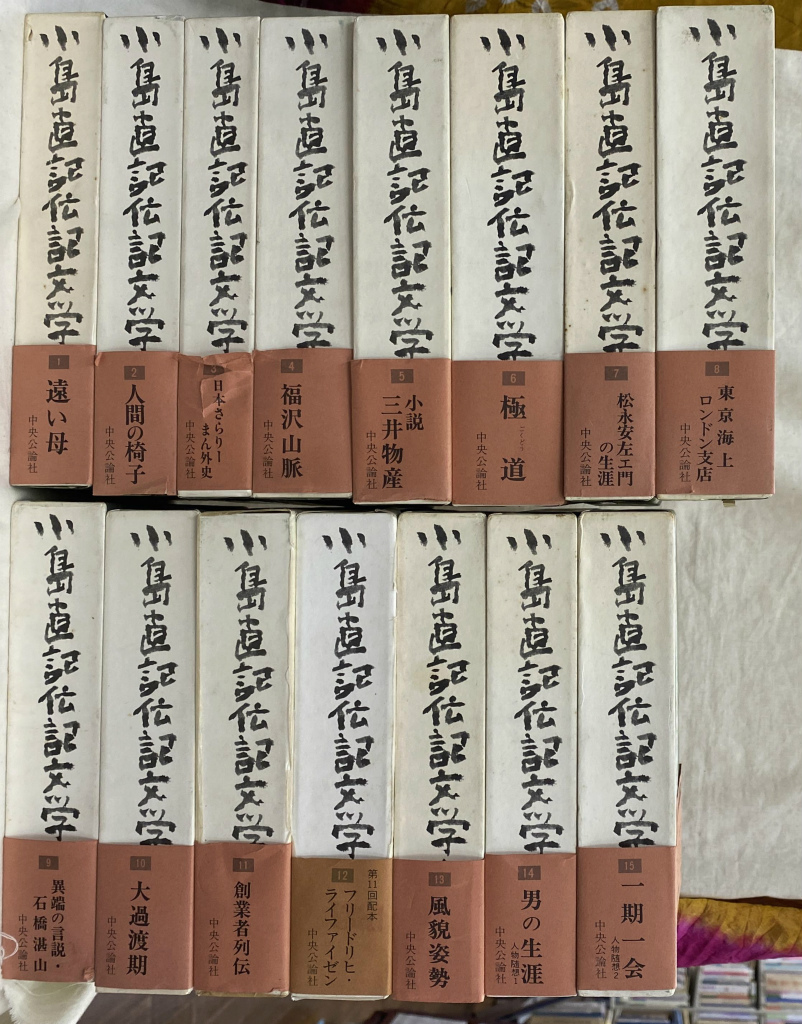 小島直記伝記文学
1
遠い母
中央公論社
小島直記伝記文学
2
人間の椅子
中央公論社
小島直記伝記文学
3
日本さらりー
まん外史
中央公論社
小島直記伝記文学
4
福沢山脈
中央公論社
小島直記伝記文学
5
小説
三井物産
中央公論社
小島直記伝記文学
6
極道
ごくどう
中央公論社
小島直記伝記文学
7
松永安左エ門
の生涯
中央公論社
小島直記伝記文学
8
東京海上
ロンドン支店
中央公論社
小島直記伝記文学
9
異端の言説・
石橋湛山
中央公論社
小島直記伝記文学
10
大過渡期
中央公論社
小島直記伝記文学
11
創業者列伝
中央公論社
小島直記伝記文学
第11回配本
12
フリードリヒ・
ライファイゼン
中央公論社
小島直記伝記文学
13
風貌姿勢
中央公論社
小島直記伝記文学
14
男の生涯
人物随想1
中央公論社
小島直記伝記文学
15
一期一会
人物随想2
中央公論社